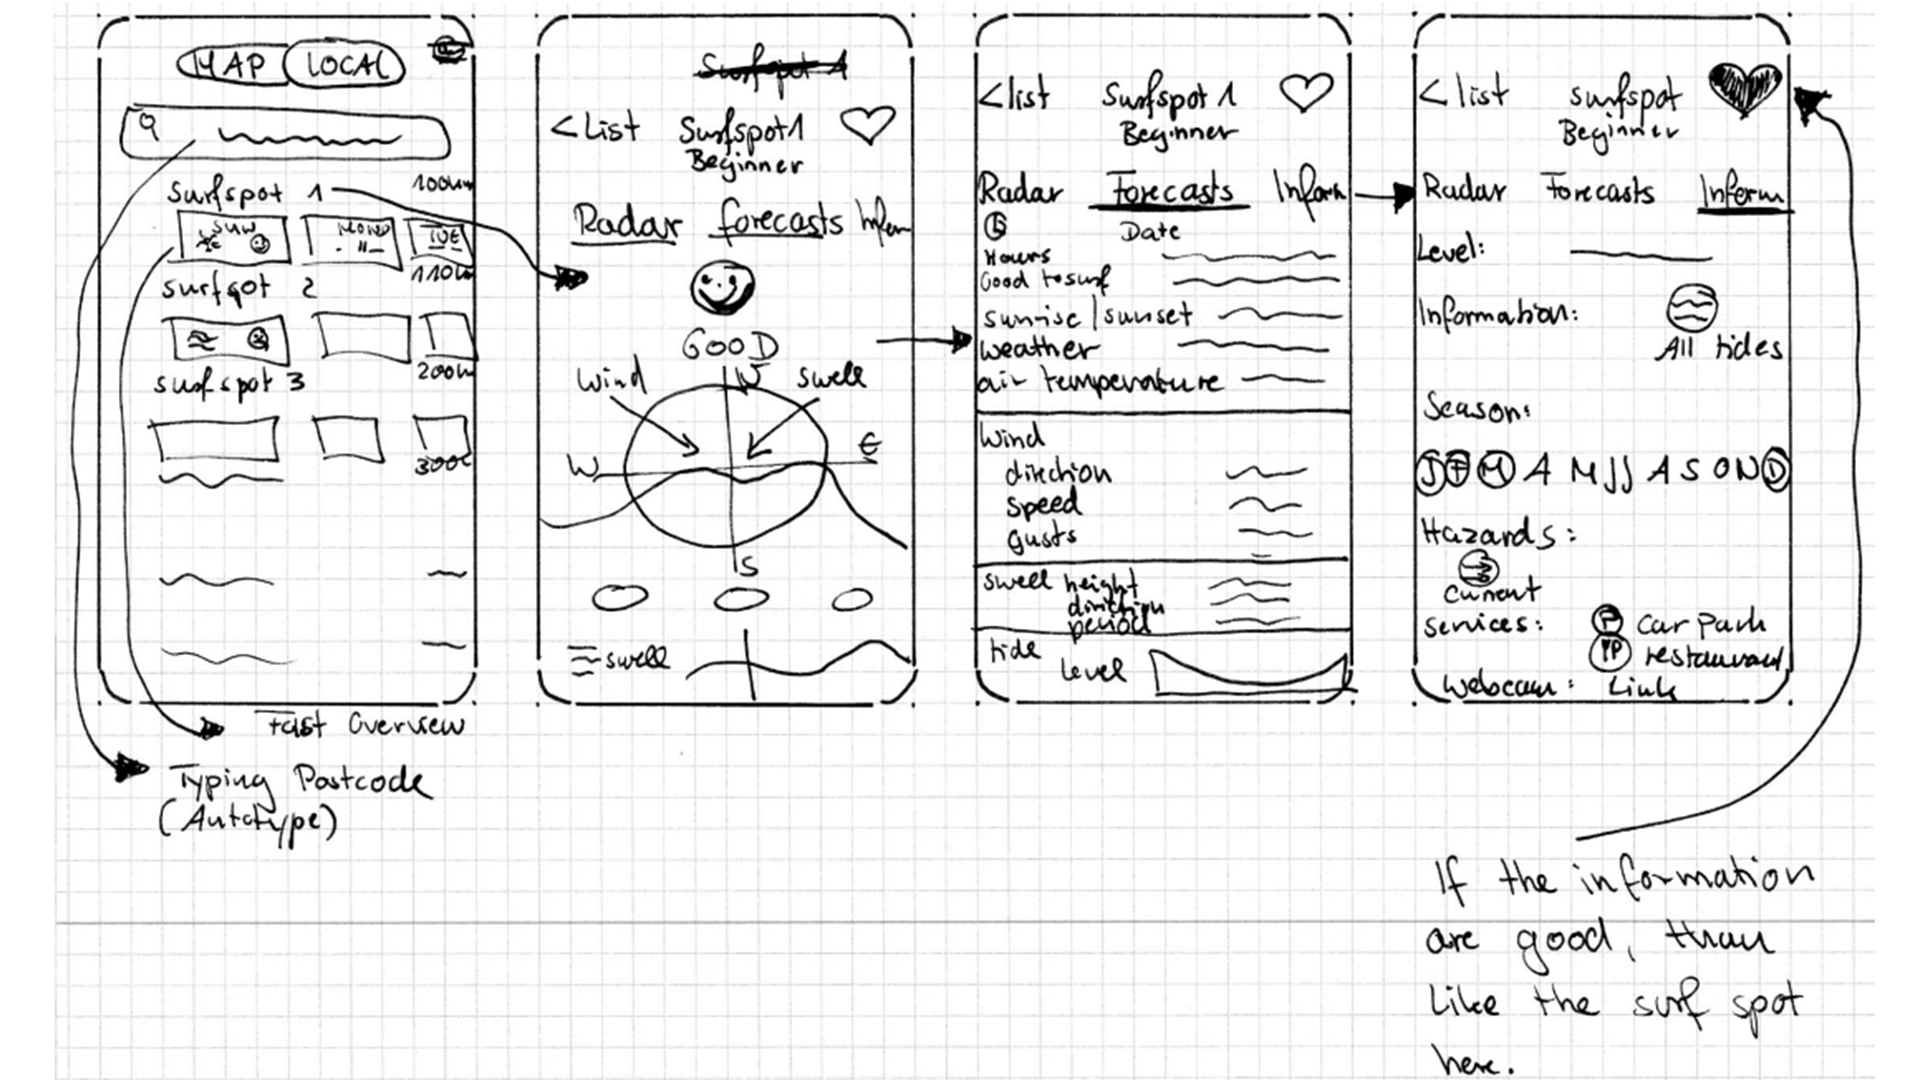 MAP LOCAL
Surfspot 1 100km
SUN MOND TUE
surfspot 2 110km
surfspot 3 200km
300k
Fast Overview
Typing Postcode
(Autotype)
Surfspot 1
< List Surfspot 1
Beginner
Radar forecasts Inform
GOOD
Wind N swell
W E
S
swell
< list Surfspot 1
Beginner
Radar Forecasts Inform
Date
Hours
Good to surf
sunrise / sunset
weather
air temperature
Wind
direction
speed
gusts
swell height
direction
period
tide
level
< list surfspot
Beginner
Radar Forecasts Inform
Level:
Information:
All tides
Season:
J F M A M J J A S O N D
Hazards:
current
services: P car park
restaurant
Webcam: Link
If the information
are good, than
like the surf spot
here.